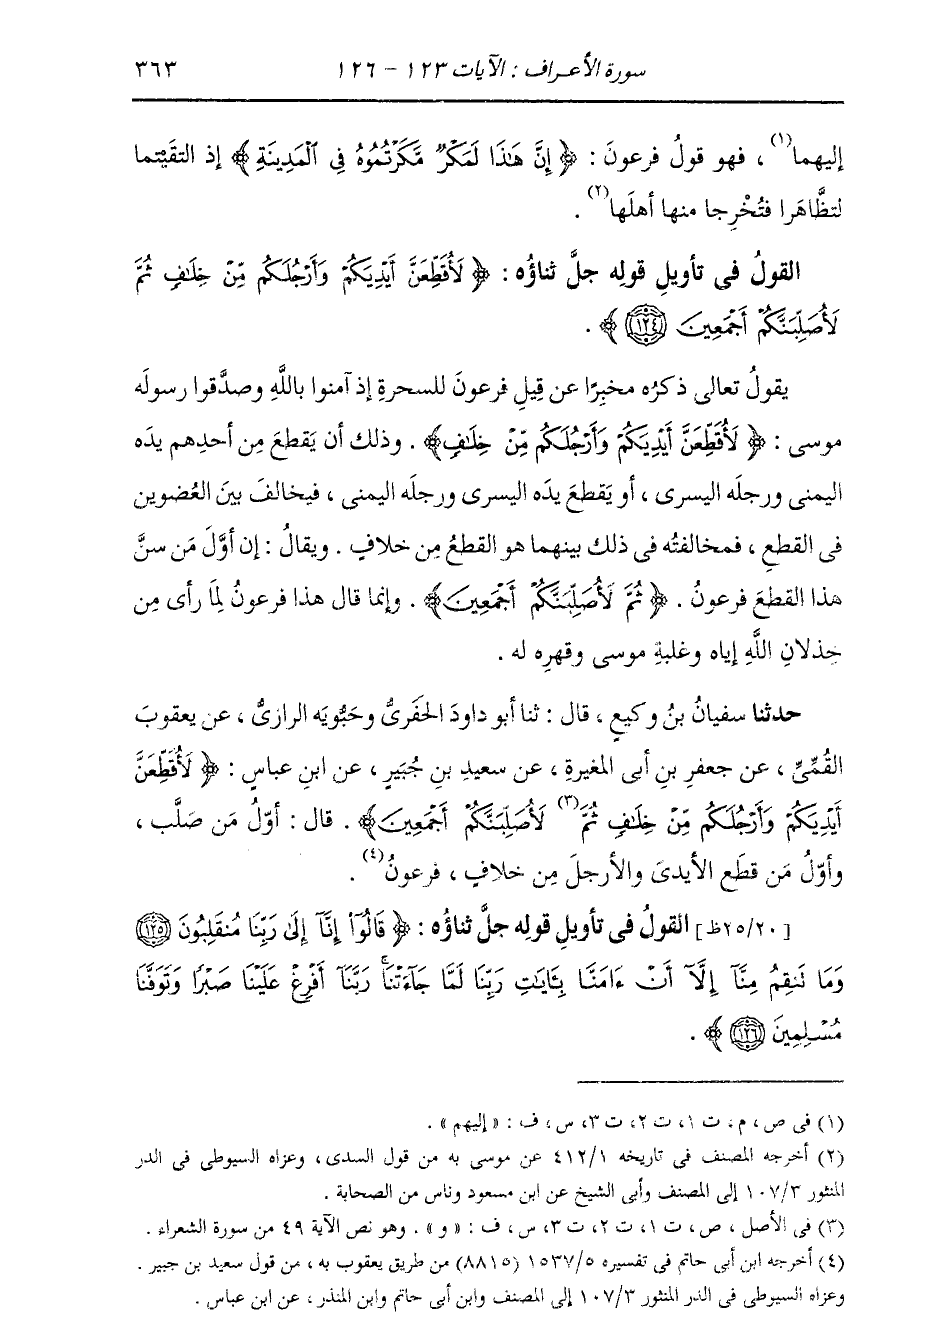 سورة الأعراف : الآيات ١٢٣ - ١٢٦ ٣٦٣
إليهما(١) ، فهو قولُ فرعونَ : ﴿ إِنَّ هَٰذَا لَمَكْرٌ مَّكَرْتُمُوهُ فِى ٱلْمَدِينَةِ ﴾ إذ التقَيْتما
لتظَّاهَرا فتُخْرِجا منها أهلَها(٢) .
القولُ فى تأويلِ قولِه جلَّ ثناؤُه : ﴿ لَأُقَطِّعَنَّ أَيْدِيَكُمْ وَأَرْجُلَكُم مِّنْ خِلَٰفٍ ثُمَّ
لَأُصَلِّبَنَّكُمْ أَجْمَعِينَ ١٢٤ ﴾ .
يقولُ تعالى ذكرُه مخبِرًا عن قيلِ فرعونَ للسحرةِ إذ آمنوا باللَّهِ وصدَّقوا رسولَه
موسى : ﴿ لَأُقَطِّعَنَّ أَيْدِيَكُمْ وَأَرْجُلَكُم مِّنْ خِلَٰفٍ ﴾ . وذلك أن يَقطعَ مِن أحدِهم يدَه
اليمنى ورجلَه اليسرى ، أو يَقطعَ يدَه اليسرى ورجلَه اليمنى ، فيخالفَ بينَ العُضوين
فى القطعِ ، فمخالفتُه فى ذلك بينهما هو القطعُ مِن خلافٍ . ويقالُ : إن أوَّلَ مَن سنَّ
هذا القطعَ فرعونُ . ﴿ ثُمَّ لَأُصَلِّبَنَّكُمْ أَجْمَعِينَ ﴾ . وإنما قال هذا فرعونُ لِمَا رأى مِن
خِذلانِ اللَّهِ إياه وغلبةِ موسى وقهرِه له .
حدثنا سفيانُ بنُ وكيعٍ ، قال : ثنا أبو داودَ الحَفَرىُّ وحَبُّويَه الرازىُّ ، عن يعقوبَ
القُمِّىِّ ، عن جعفرِ بنِ أبى المغيرةِ ، عن سعيدِ بنِ جُبَيرٍ ، عن ابنِ عباسٍ : ﴿ لَأُقَطِّعَنَّ
أَيْدِيَكُمْ وَأَرْجُلَكُم مِّنْ خِلَٰفٍ ثُمَّ(٣) لَأُصَلِّبَنَّكُمْ أَجْمَعِينَ ﴾ . قال : أوّلُ مَن صَلَّب ،
وأوّلُ مَن قطَع الأيدىَ والأرجلَ مِن خلافٍ ، فرعونُ(٤) .
[٢٥/٢٠ظ] القولُ فى تأويلِ قولِه جلَّ ثناؤُه : ﴿ قَالُوٓا۟ إِنَّآ إِلَىٰ رَبِّنَا مُنقَلِبُونَ ١٢٥
وَمَا تَنقِمُ مِنَّآ إِلَّآ أَنْ ءَامَنَّا بِـَٔايَٰتِ رَبِّنَا لَمَّا جَآءَتْنَا ۚ رَبَّنَآ أَفْرِغْ عَلَيْنَا صَبْرًا وَتَوَفَّنَا
مُسْلِمِينَ ١٢٦ ﴾ .
(١) فى ص ، م ، ت ١، ت ٢، ت ٣، س ، ف : « إليهم » .
(٢) أخرجه المصنف فى تاريخه ٤١٢/١ عن موسى به من قول السدى ، وعزاه السيوطى فى الدر
المنثور ١٠٧/٣ إلى المصنف وأبى الشيخ عن ابن مسعود وناس من الصحابة .
(٣) فى الأصل ، ص ، ت ١، ت ٢، ت ٣، س ، ف : « و » . وهو نص الآية ٤٩ من سورة الشعراء .
(٤) أخرجه ابن أبى حاتم فى تفسيره ١٥٣٧/٥ (٨٨١٥) من طريق يعقوب به ، من قول سعيد بن جبير .
وعزاه السيوطى فى الدر المنثور ١٠٧/٣ إلى المصنف وابن أبى حاتم وابن المنذر ، عن ابن عباس .